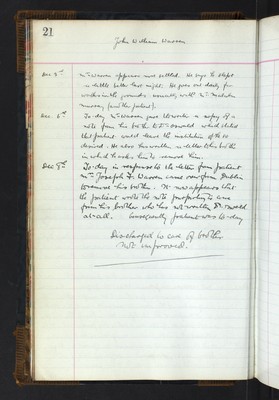 21
John William Warren
Dec. 3rd. Mr Warren appears more settled. He says he slept
a little better last night. He goes out daily for
walks in the grounds usually with Mr. Malcolm
Murray (another patient).
Dec. 6th. To-day Mr Warren gave the writer a copy of a
note from his brother to Dr. Oswald which stated
that patient could leave the institution if he so
desired. He also has written a letter to his brother
in which he asks him to remove him.
Dec 9th. To-day in response to the letter from patient
Mr. Joseph F. Warren came over from Dublin
to remove his brother. It now appears that
the patient wrote the note purporting to come
from his brother who has not written Dr. Oswald
at all. Consequently patient was to-day
Discharged to care of brother
Not improved.